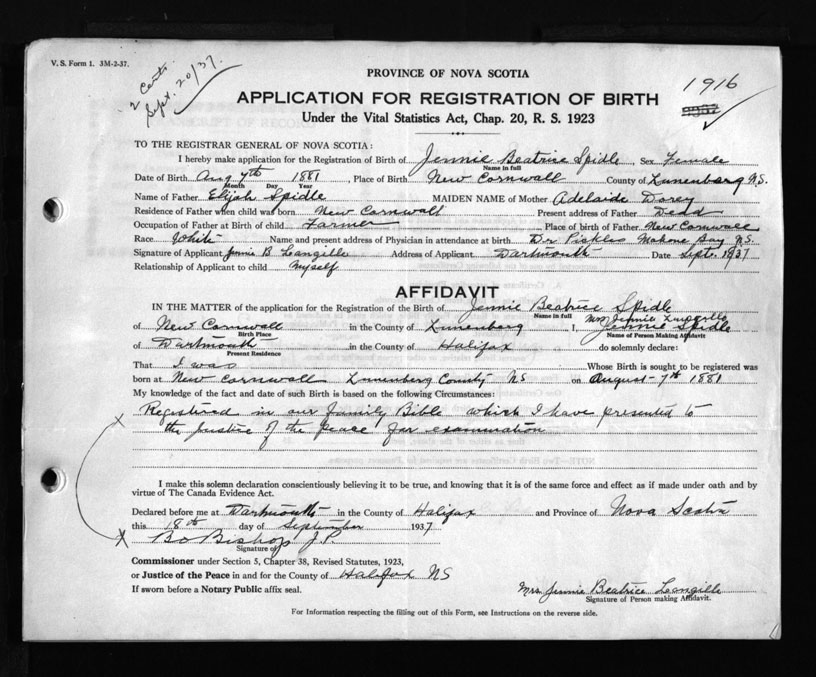 V. S. Form 1. 3M-2-37.
2 Certs.
Sept. 20/37.
PROVINCE OF NOVA SCOTIA
1916
APPLICATION FOR REGISTRATION OF BIRTH
Under the Vital Statistics Act, Chap. 20, R. S. 1923
TO THE REGISTRAR GENERAL OF NOVA SCOTIA:
I hereby make application for the Registration of Birth of Jennie Beatrice Spidle, Sex Female
Name in full
Date of Birth Aug 7th 1881, Place of Birth New Cornwall County of Lunenburg N.S.
Month Day Year
Name of Father Elijah Spidle MAIDEN NAME of Mother Adelaide Dorey
Residence of Father when child was born New Cornwall Present address of Father Dead
Occupation of Father at Birth of child Farmer Place of birth of Father New Cornwall
Race White Name and present address of Physician in attendance at birth Dr Pickles Mahone Bay NS
Signature of Applicant Jennie B Langille Address of Applicant Dartmouth Date Sept. 1937
Relationship of Applicant to child myself
AFFIDAVIT
IN THE MATTER of the application for the Registration of the Birth of Jennie Beatrice Spidle
Name in full
Mrs Jennie Langille
of New Cornwall in the County of Lunenburg I, Jennie Spidle
Birth Place Name of Person Making Affidavit
of Dartmouth in the County of Halifax do solemnly declare:
Present Residence
That I was Whose Birth is sought to be registered was
born at New Cornwall Lunenburg County NS on August 7th 1881
My knowledge of the fact and date of such Birth is based on the following Circumstances:
Registered in our Family Bible which I have presented to
the Justice of the Peace for examination
I make this solemn declaration conscientiously believing it to be true, and knowing that it is of the same force and effect as if made under oath and by
virtue of The Canada Evidence Act.
Declared before me at Dartmouth in the County of Halifax and Province of Nova Scotia
this 18th day of September 1937
Bishop J.P
Signature of
Commissioner under Section 5, Chapter 38, Revised Statutes, 1923,
or Justice of the Peace in and for the County of Halifax NS
If sworn before a Notary Public affix seal.
Mrs. Jennie Beatrice Langille
Signature of Person making Affidavit.
For Information respecting the filling out of this Form, see Instructions on the reverse side.